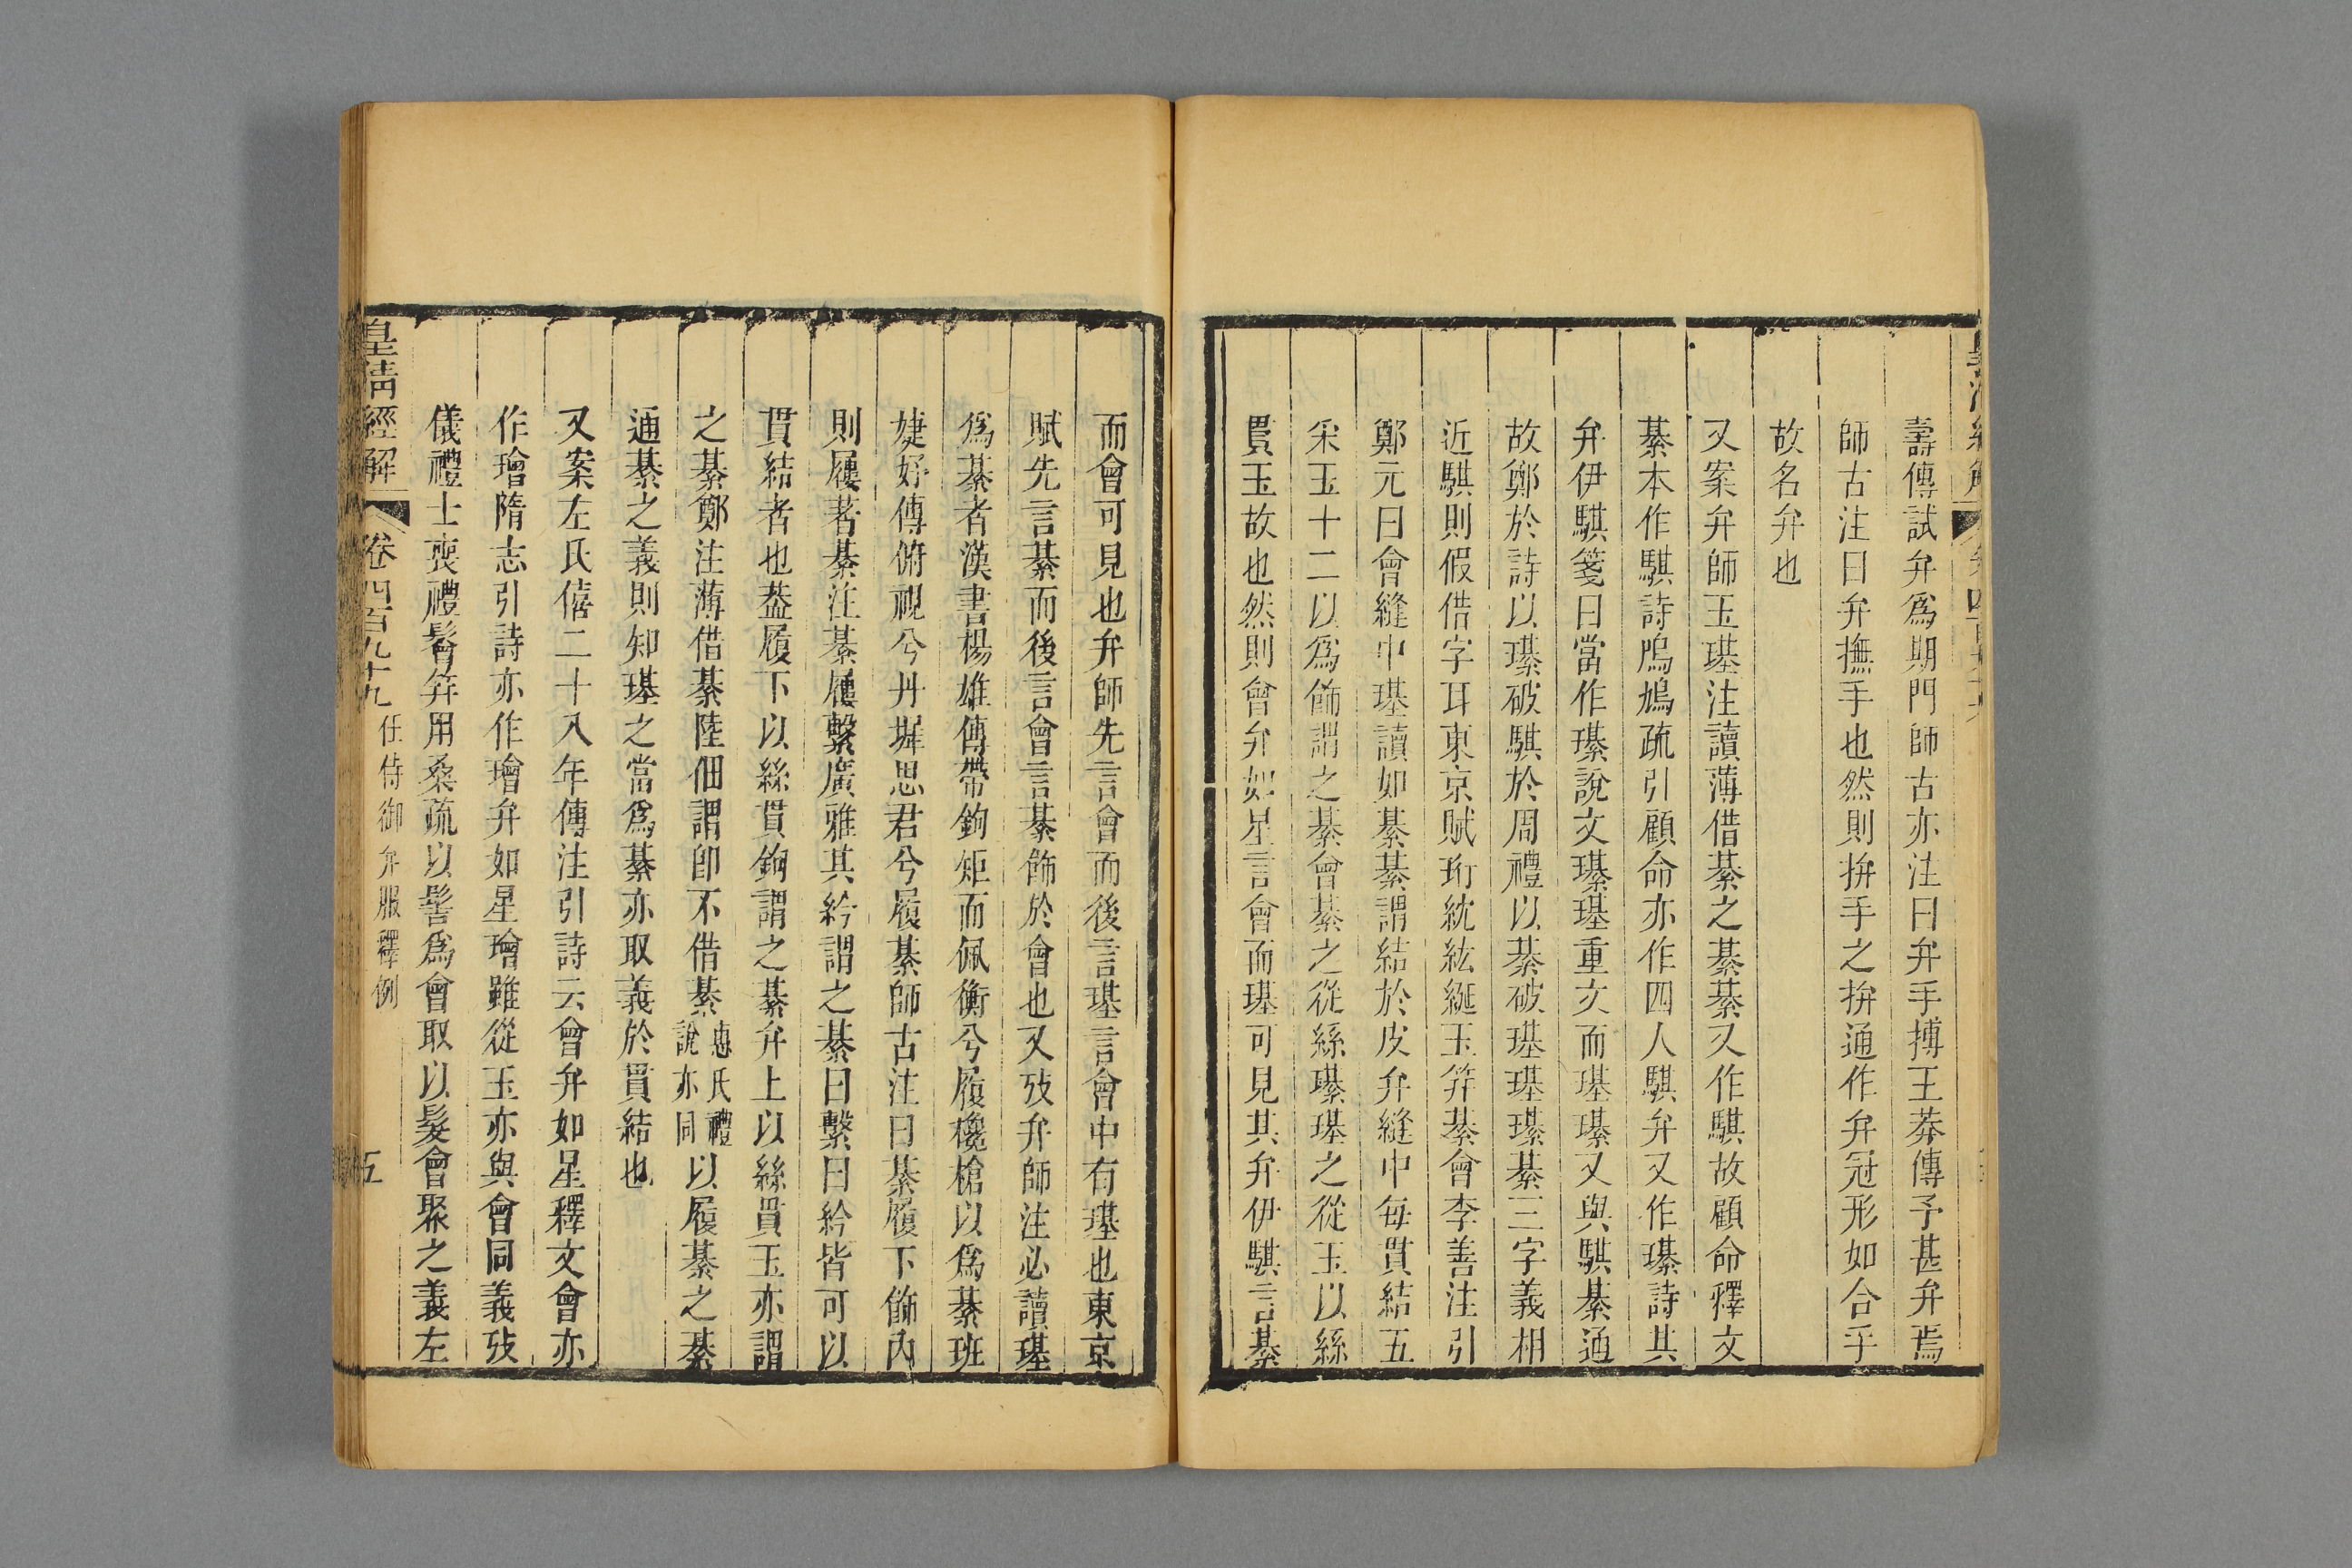 壽傳試弁爲期門師古亦注曰弁手搏王莽傳予甚弁焉
師古注曰弁撫手也然則拚手之拚通作弁冠形如合手
故名弁也
又案弁師玉璂注讀薄借綦之綦綦又作騏故顧命釋文
綦本作騏詩鳲鳩疏引顧命亦作四人騏弁又作瓂詩其
弁伊騏箋曰當作瓂說文瓂璂重文而璂瓂又與騏綦通
故鄭於詩以瓂破騏於周禮以綦破璂璂瓂綦三字義相
近騏則假借字耳東京賦珩紞紘綖玉笄綦會李善注引
鄭元曰會縫中璂讀如綦綦謂結於皮弁縫中每貫結五
采玉十二以爲飾謂之綦會綦之從絲瓂璂之從玉以絲
貫玉故也然則會弁如星言會而璂可見其弁伊騏言綦
而會可見也弁師先言會而後言璂言會中有璂也東京
賦先言綦而後言會言綦飾於會也又攷弁師注必讀璂
爲綦者漢書楊雄傳帶鉤矩而佩衡兮履欃槍以爲綦班
婕妤傳俯視兮丹墀思君兮履綦師古注曰綦履下飾內
則屨著綦注綦屨繫廣雅其紟謂之綦曰繫曰紟皆可以
貫結者也葢履下以絲貫鉤謂之綦弁上以絲貫玉亦謂
之綦鄭注薄借綦陸佃謂卽不借綦惠氏禮說亦同以履綦之綦
通綦之義則知璂之當爲綦亦取義於貫結也
又案左氏僖二十八年傳注引詩云會弁如星釋文會亦
作璯隋志引詩亦作璯弁如星璯雖從玉亦與會同義攷
儀禮士喪禮鬠笄用桑疏以髻爲會取以髮會聚之義左
皇淸經解 卷四百九十九 任侍御弁服釋例 五